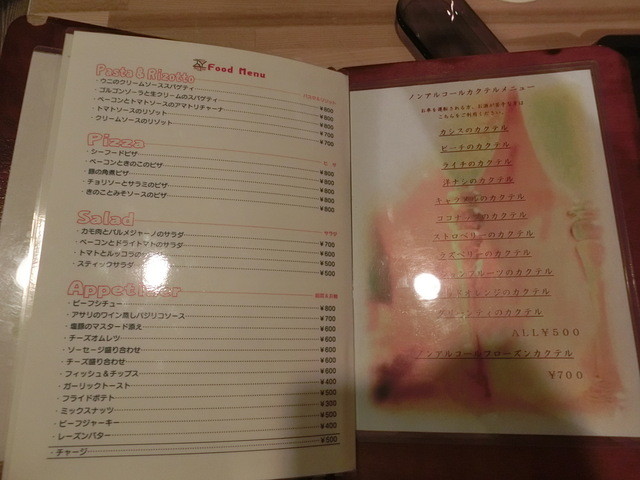 Food Menu
Pasta & Rizotto
・ウニのクリームソーススパゲティ ¥800
・ゴルゴンゾーラと生クリームのスパゲティ ¥800
・ベーコンとトマトソースのアマトリチャーナ ¥800
・トマトソースのリゾット ¥700
・クリームソースのリゾット ¥700
Pizza ピザ
・シーフードピザ ¥800
・ベーコンときのこのピザ ¥800
・豚の角煮ピザ ¥800
・チョリソーとサラミのピザ ¥800
・きのことみそソースのピザ ¥800
Salad サラダ
・カモ肉とパルメジャーノのサラダ ¥700
・ベーコンとドライトマトのサラダ ¥600
・トマトとルッコラの ¥500
・スティックサラダ ¥500
Appetizer
・ビーフシチュー ¥800
・アサリのワイン蒸しバジリコソース ¥700
・塩豚のマスタード添え ¥600
・チーズオムレツ ¥600
・ソーセージ盛り合わせ ¥600
・チーズ盛り合わせ ¥600
・フィッシュ&チップス ¥600
・ガーリックトースト ¥400
・フライドポテト ¥500
・ミックスナッツ ¥300
・ビーフジャーキー ¥500
・レーズンバター ¥400
・チャージ ¥500
ノンアルコールカクテルメニュー
お車を運転される方、お酒が苦手な方は
こちらをご利用ください。
カシスのカクテル
ピーチのカクテル
ライチのカクテル
洋ナシのカクテル
キャラメルのカクテル
ココナッツのカクテル
ストロベリーのカクテル
ラズベリーのカクテル
ションフルーツのカクテル
オレンジのカクテル
のカクテル
ALL¥500
ノンアルコールフローズンカクテル
¥700